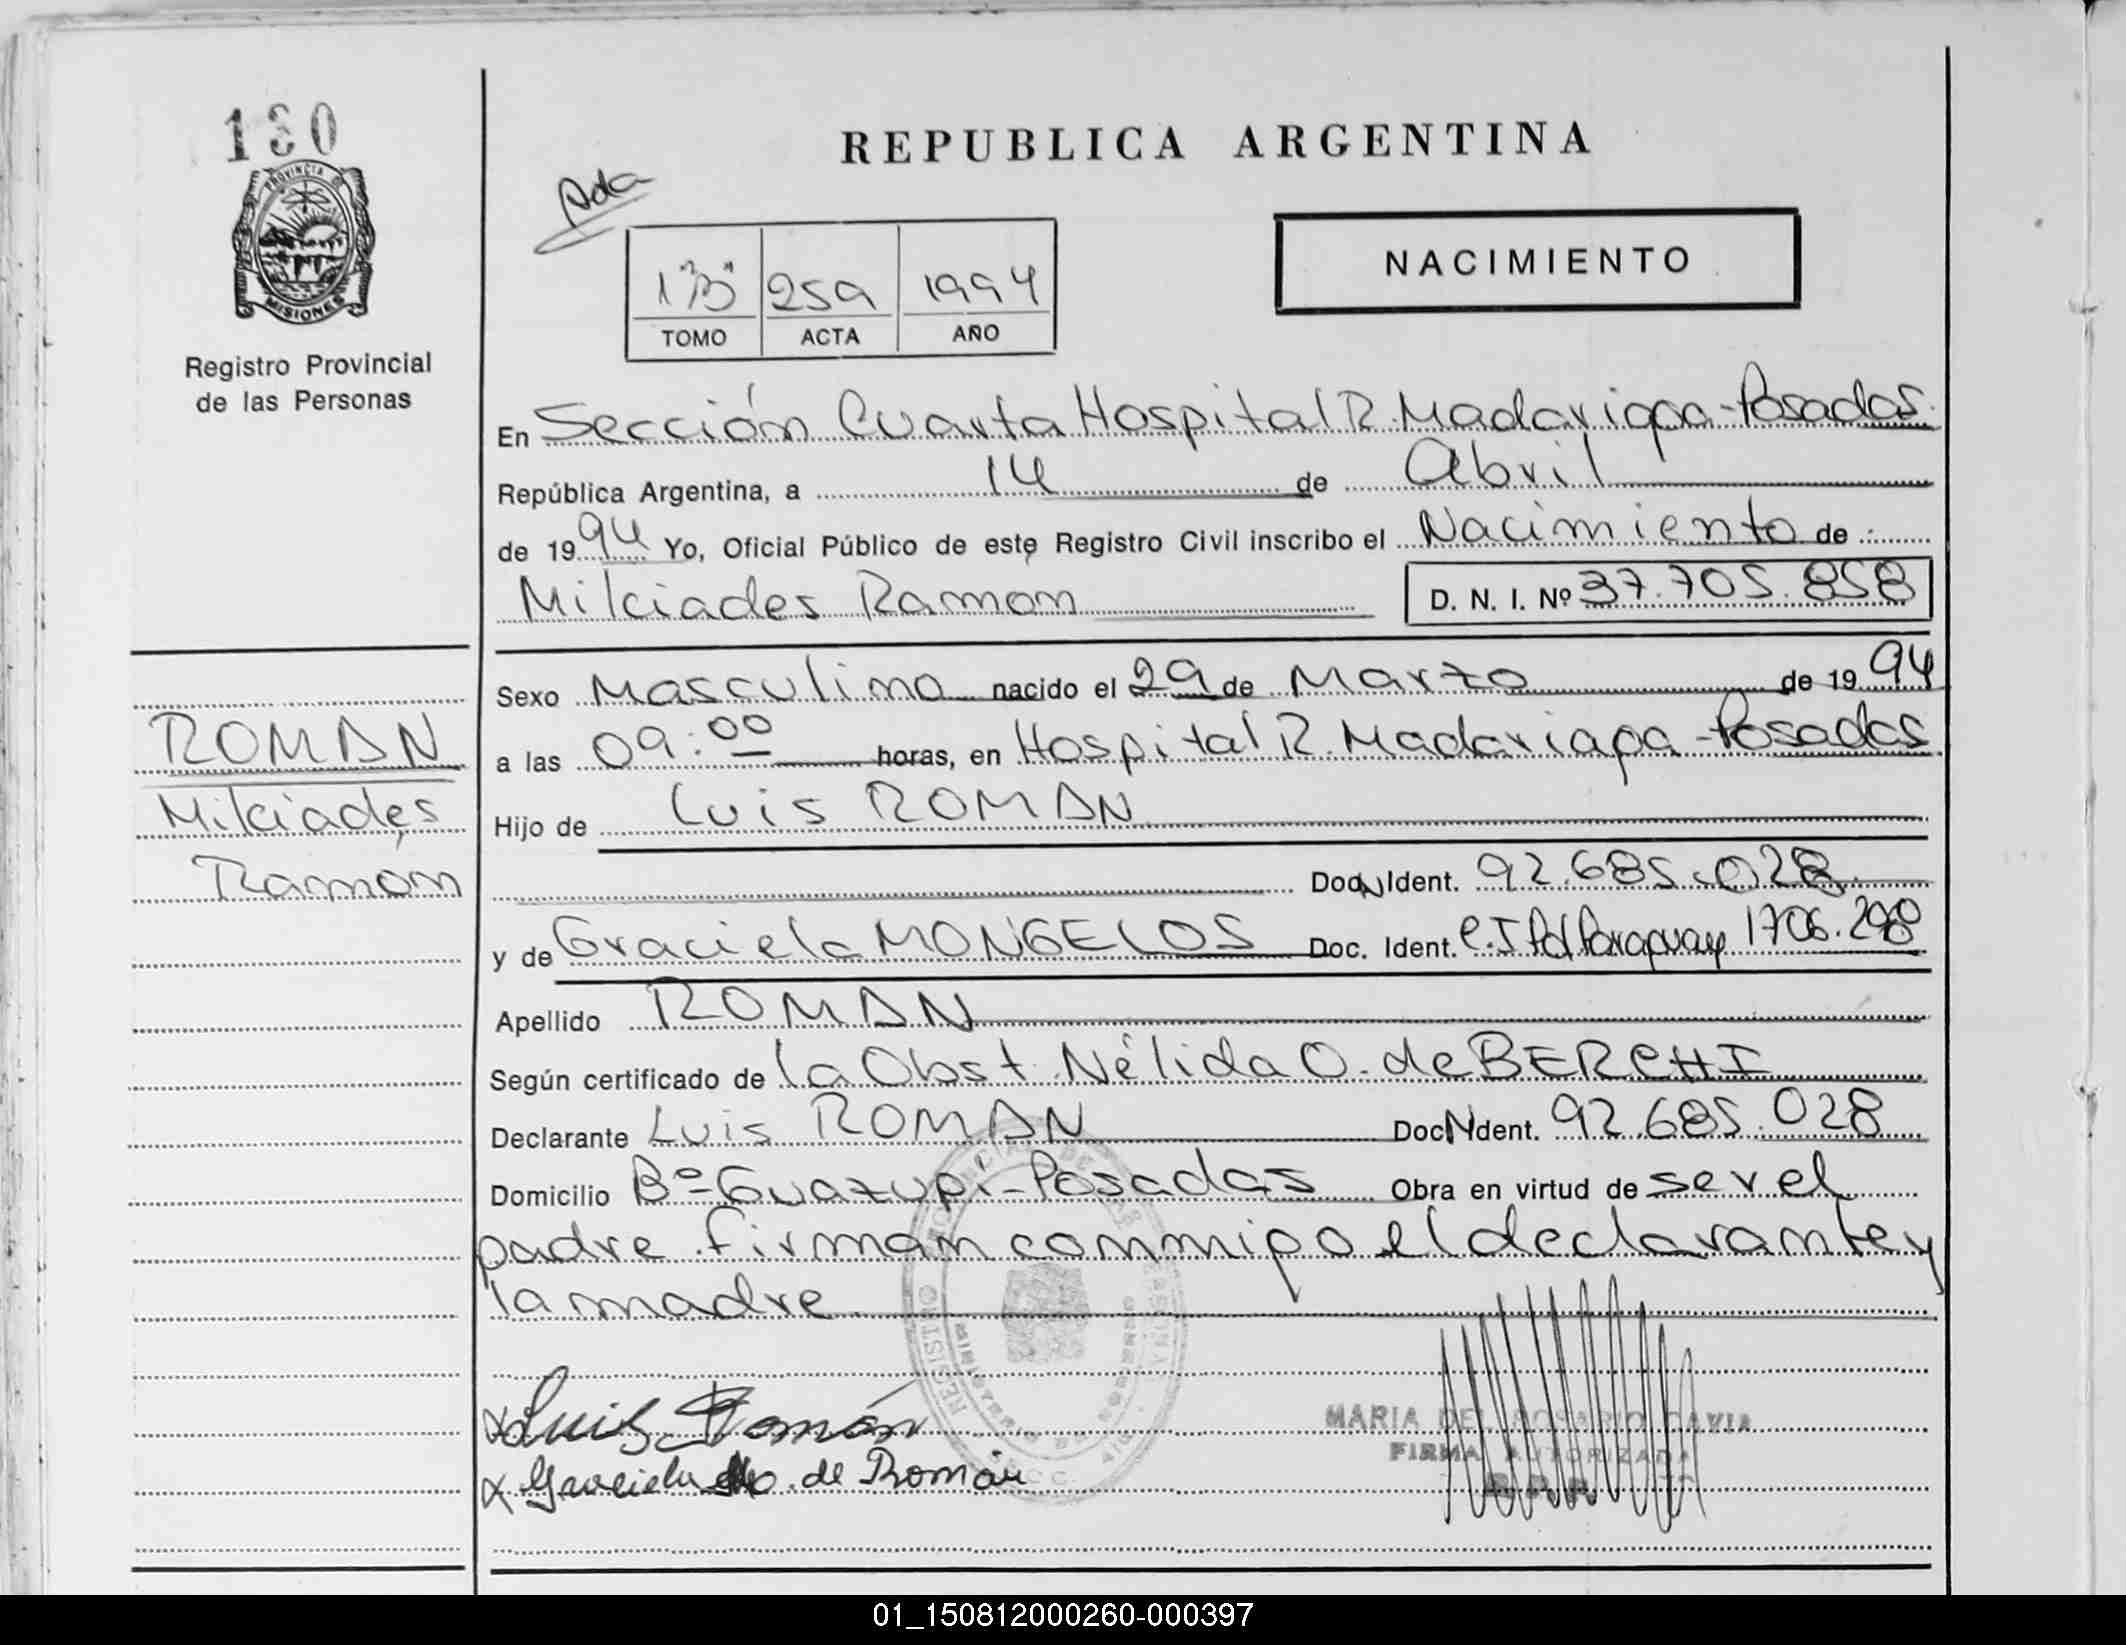 130
PROVINCIA DE
MISIONES
Registro Provincial
de las Personas
REPUBLICA ARGENTINA
NACIMIENTO
1"B" 259 1994
TOMO ACTA AÑO
En Sección Cuarta Hospital R. Madariaga-Posadas.
República Argentina, a 14 de Abril
de 1994 Yo, Oficial Público de este Registro Civil inscribo el Nacimiento de
Milciades Ramon D. N. I. Nº 37.705.858
Sexo Masculino nacido el 29 de Marzo de 1994
a las 09:00 horas, en Hospital R. Madariaga-Posadas
Hijo de Luis ROMAN
Doc. Ident. 92.685.028
y de Graciela MONGELOS Doc. Ident. C.I. Pol. Paraguay 1706.298
Apellido ROMAN
Según certificado de la Obst. Nélida O. de BERCHI
Declarante Luis ROMAN Doc. Ident. 92.685.028
Domicilio Bº-Guazupi-Posadas Obra en virtud de ser el
padre. firman conmigo el declarante y
la madre.
ROMAN
Milciades
Ramón
x Luis Román
x Graciela M. de Román
MARIA DEL ROSARIO GAVIA
FIRMA AUTORIZADA
R.P.P.
01_150812000260-000397